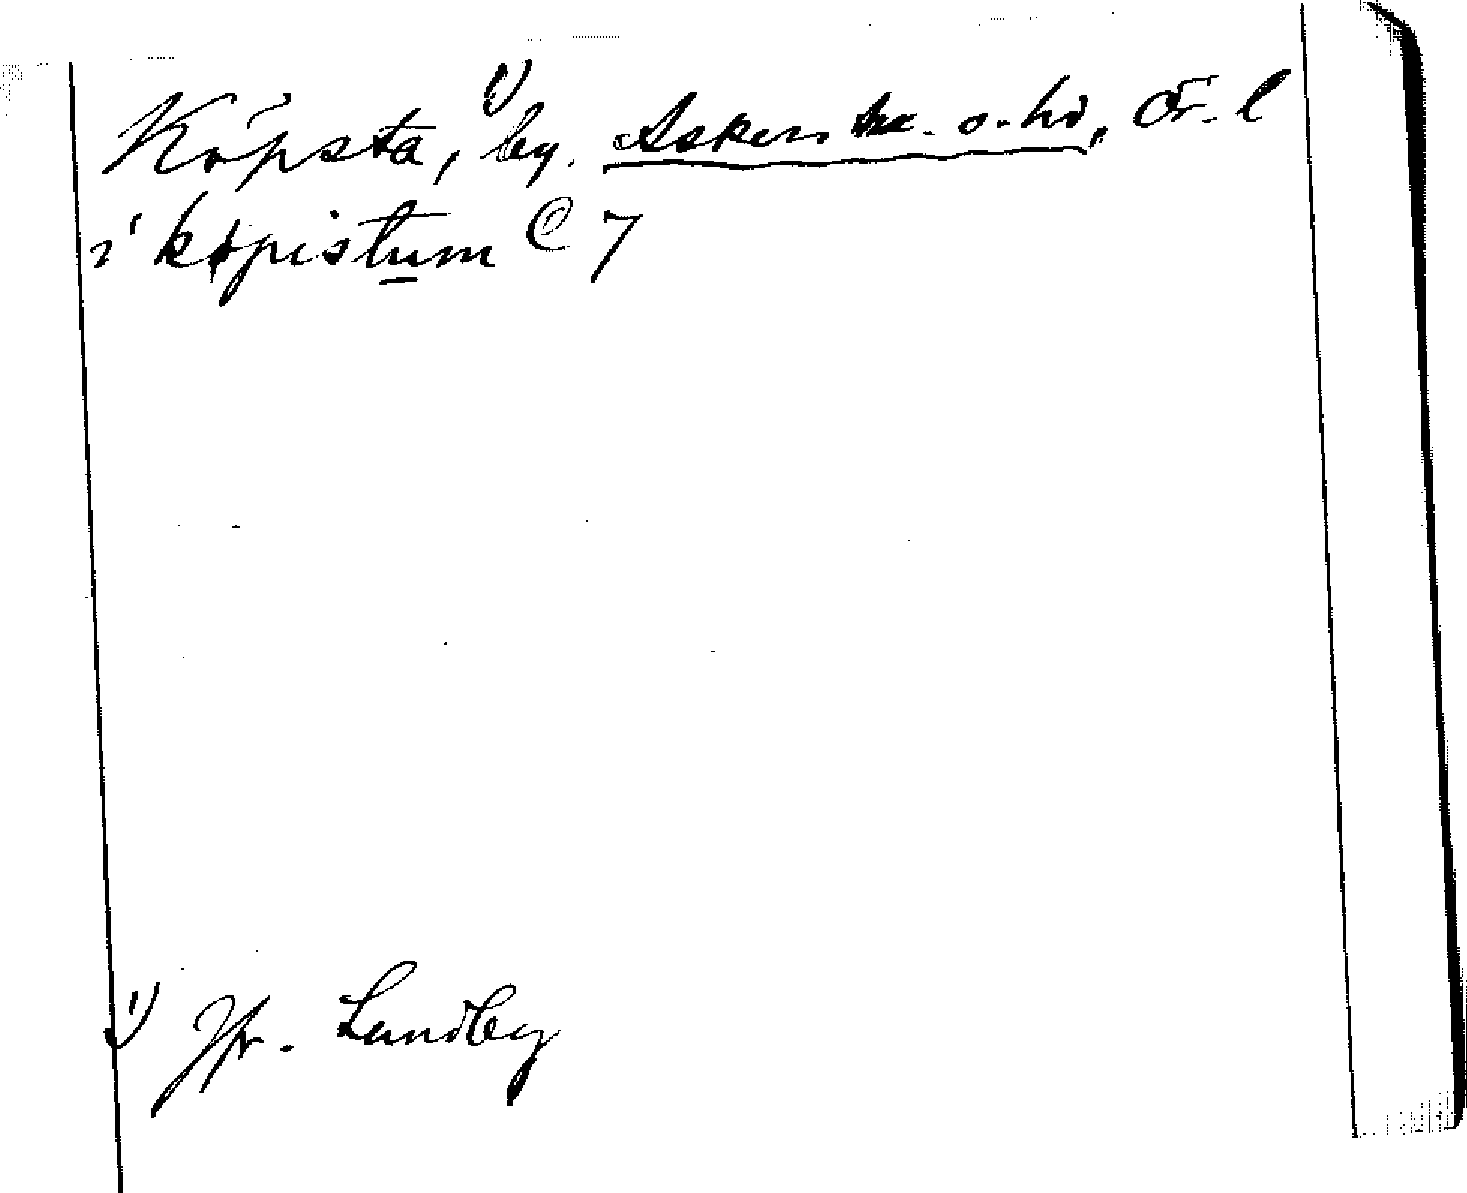 Köpsta, 1) by. Askers sn. o. hd, Ör. l
i køpistum C 7
1) Jfr. Lundby